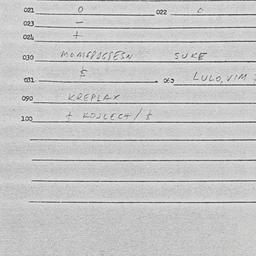 021 0 022 0
023 —
024 +
030 SUKE
031 $ 063 LULO, VIM
090 KREPLAX
100 + KOJLECH / $